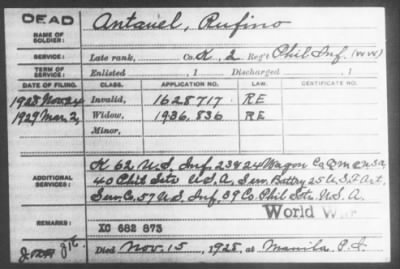 DEAD
NAME OF SOLDIER: Antauel, Rufino
SERVICE: Late rank, Co. K, 2 Reg't Phil Inf. (WW)
TERM OF SERVICE: Enlisted , 1 Discharged , 1
DATE OF FILING: CLASS. APPLICATION NO. LAW. CERTIFICATE NO.
1928 Nov 24 Invalid, 1628717 RE
1929 Mar 2, Widow, 1936.836 RE
Minor,
ADDITIONAL SERVICES: K 62 U.S. Inf, 23 & 24 Wagon Co QMC USA,
40 Phil Scts U.S.A, Serv. Battry 25 U.S. F Art,
Serv. C. 57 U.S. Inf, 39 Co. Phil Scts. U.S.A.
World War
REMARKS: XC 682 873
Died Nov. 15, 1928, at Manila P.I.